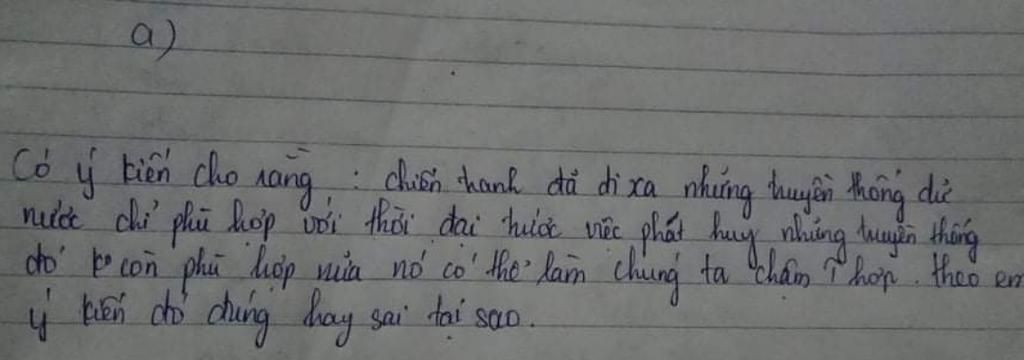 a)
Có ý kiến cho rằng : chiến tranh đã đi xa những truyền thống giữ
nước chỉ phù hợp với thời đại trước việc phát huy những truyền thống
đó ko còn phù hợp nữa nó có thể làm chúng ta chậm hơn. theo em
ý kiến đó đúng hay sai tại sao.